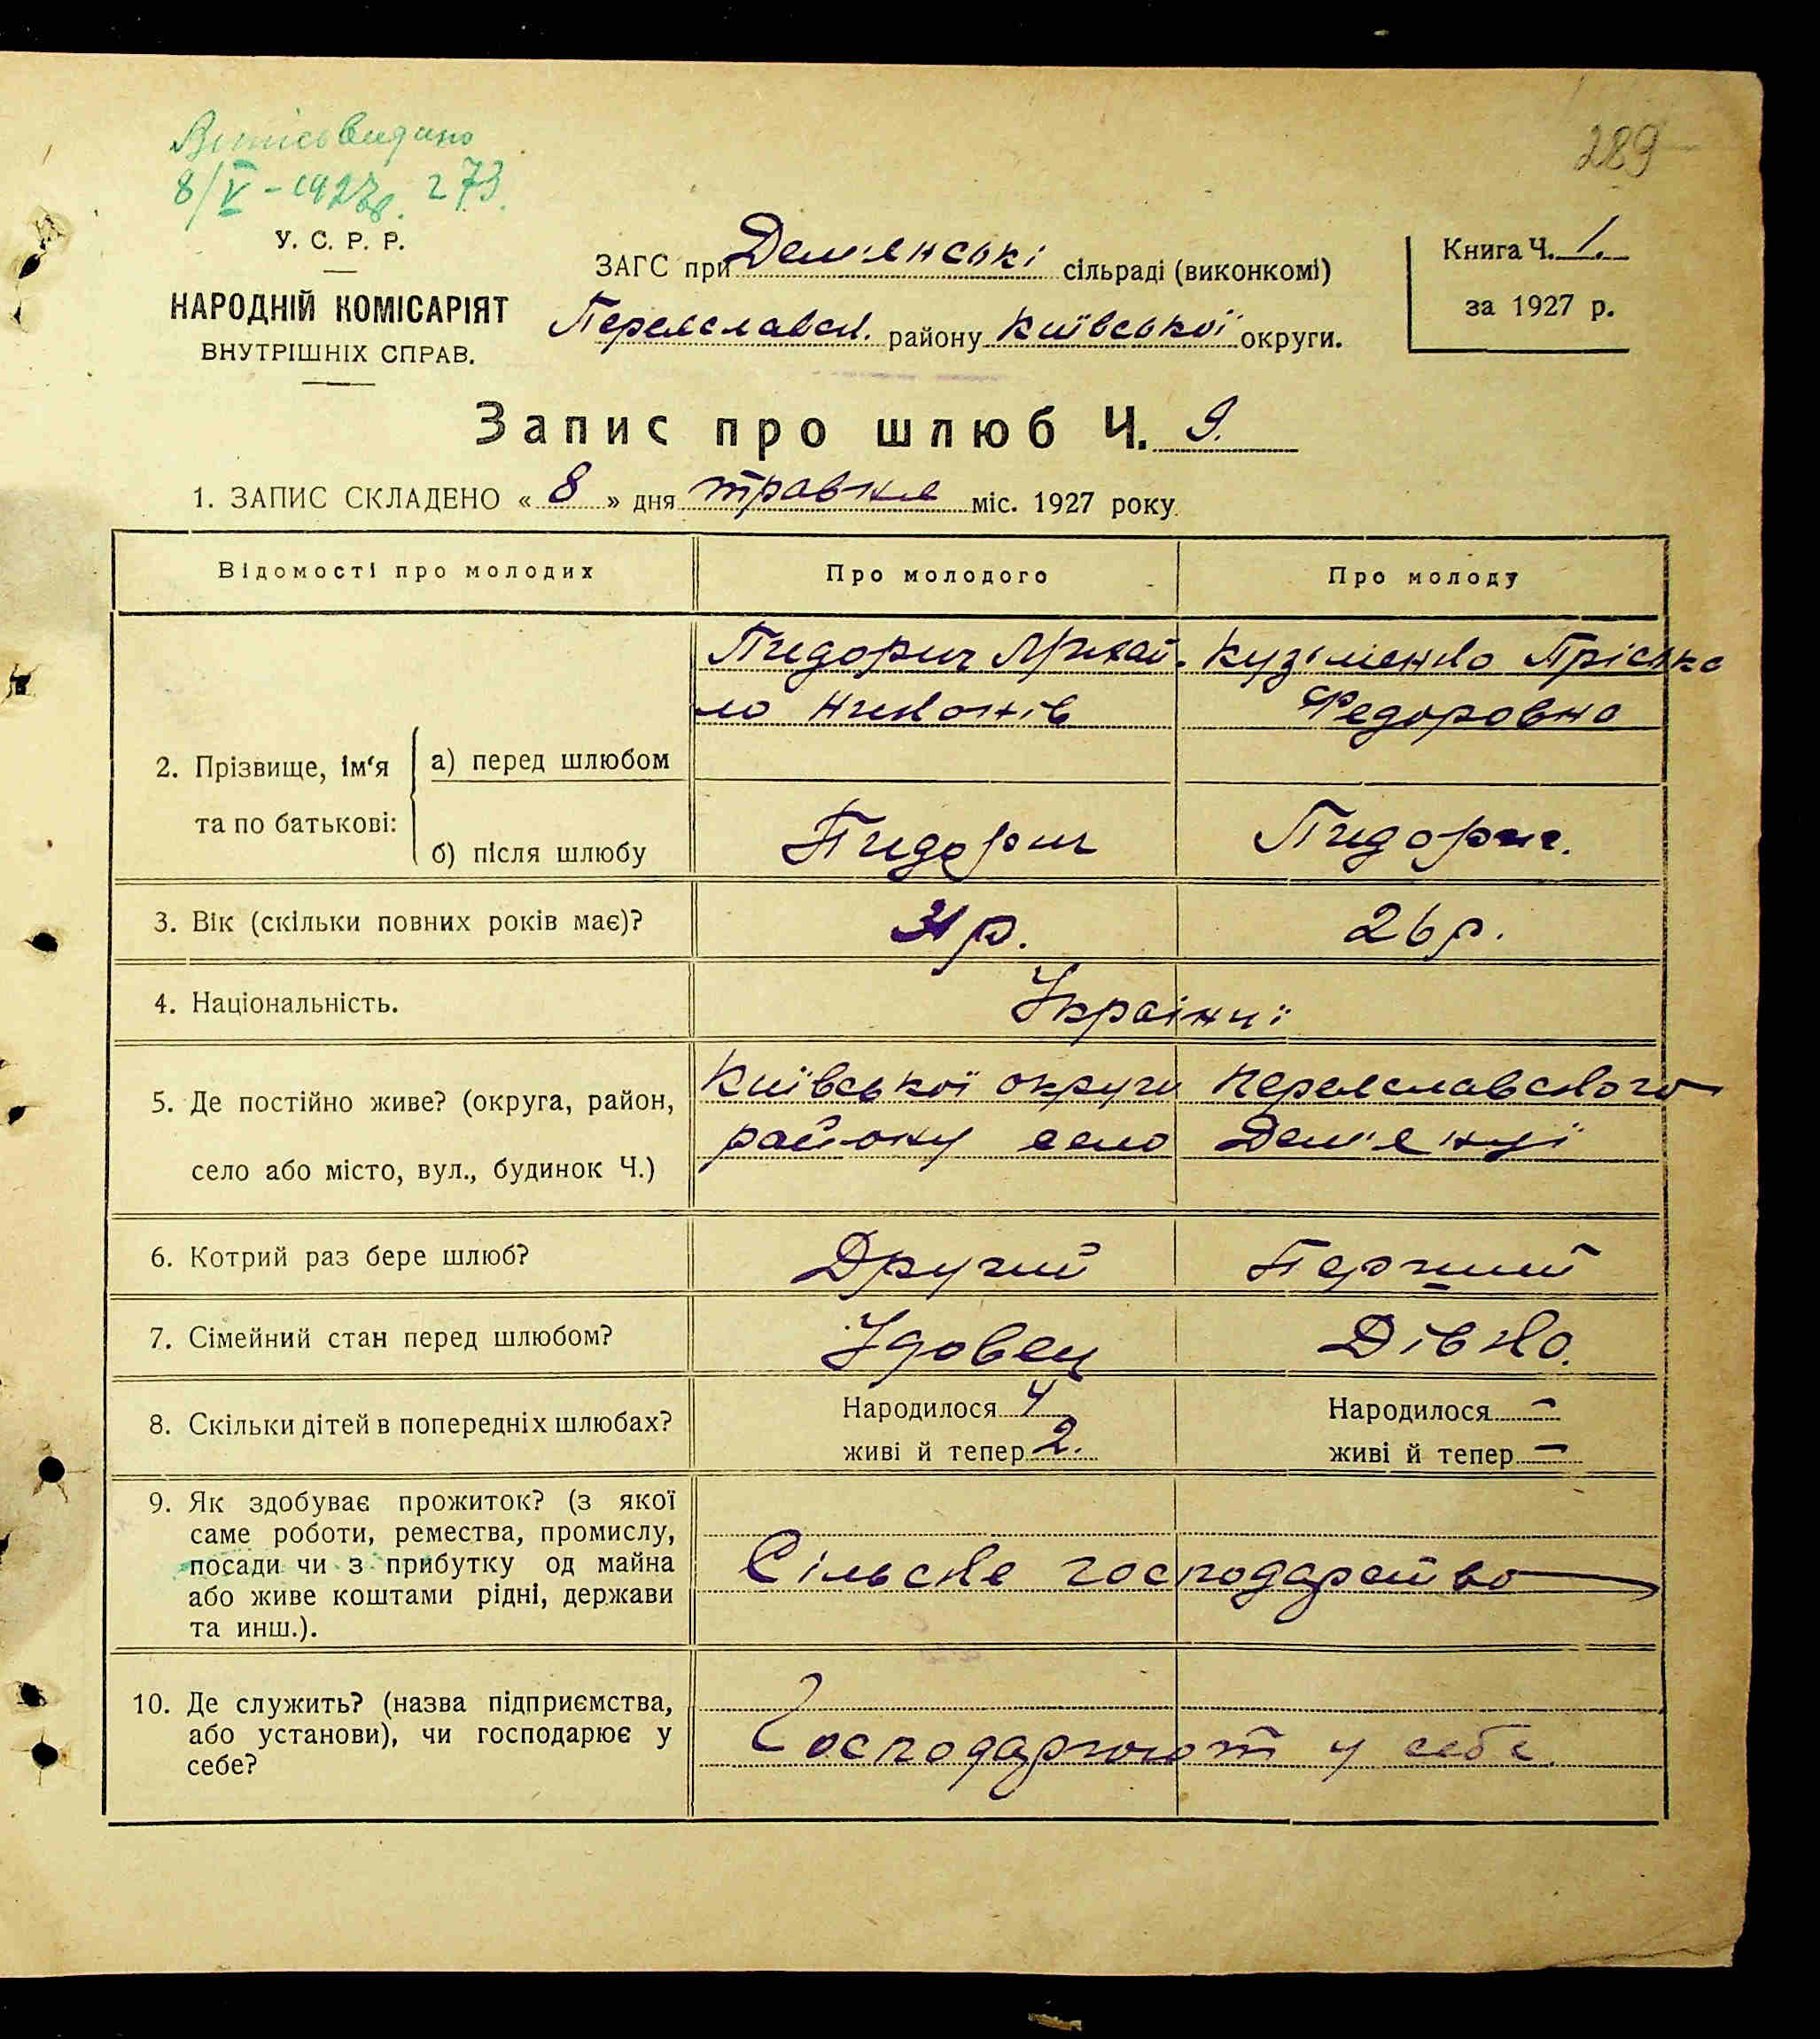 289
Витіс видано
8/V – 1927 р. 273.
У. С. Р. Р.
НАРОДНІЙ КОМІСАРІЯТ
ВНУТРІШНІХ СПРАВ.
ЗАГС при Дем'енські сільраді (виконкомі)
Переяславськ. району Київської округи.
Книга Ч. 1.
за 1927 р.
Запис про шлюб Ч. 9.
1. ЗАПИС СКЛАДЕНО « 8 » дня травня міс. 1927 року.
Відомості про молодих Про молодого Про молоду
2. Прізвище, ім'я та по батькові:
а) перед шлюбом
Пидорич Михай-
ло Никонів
Кузьменко Пріська
Федоровна
б) після шлюбу Пидорич Пидорич.
3. Вік (скільки повних років має)? 31 р. 26 р.
4. Національність. Українці
5. Де постійно живе? (округа, район,
село або місто, вул., будинок Ч.)
Київської округи Переяславського
району село Дем'енці
6. Котрий раз бере шлюб? Другий Перший
7. Сімейний стан перед шлюбом? Удовец Дівка.
8. Скільки дітей в попередніх шлюбах?
Народилося 4
живі й тепер 2.
Народилося –
живі й тепер –
9. Як здобуває прожиток? (з якої
саме роботи, ремества, промислу,
посади чи з прибутку од майна
або живе коштами рідні, держави
та инш.).
Сільске господарство
10. Де служить? (назва підприємства,
або установи), чи господарює у
себе?
Господарюют у себе.